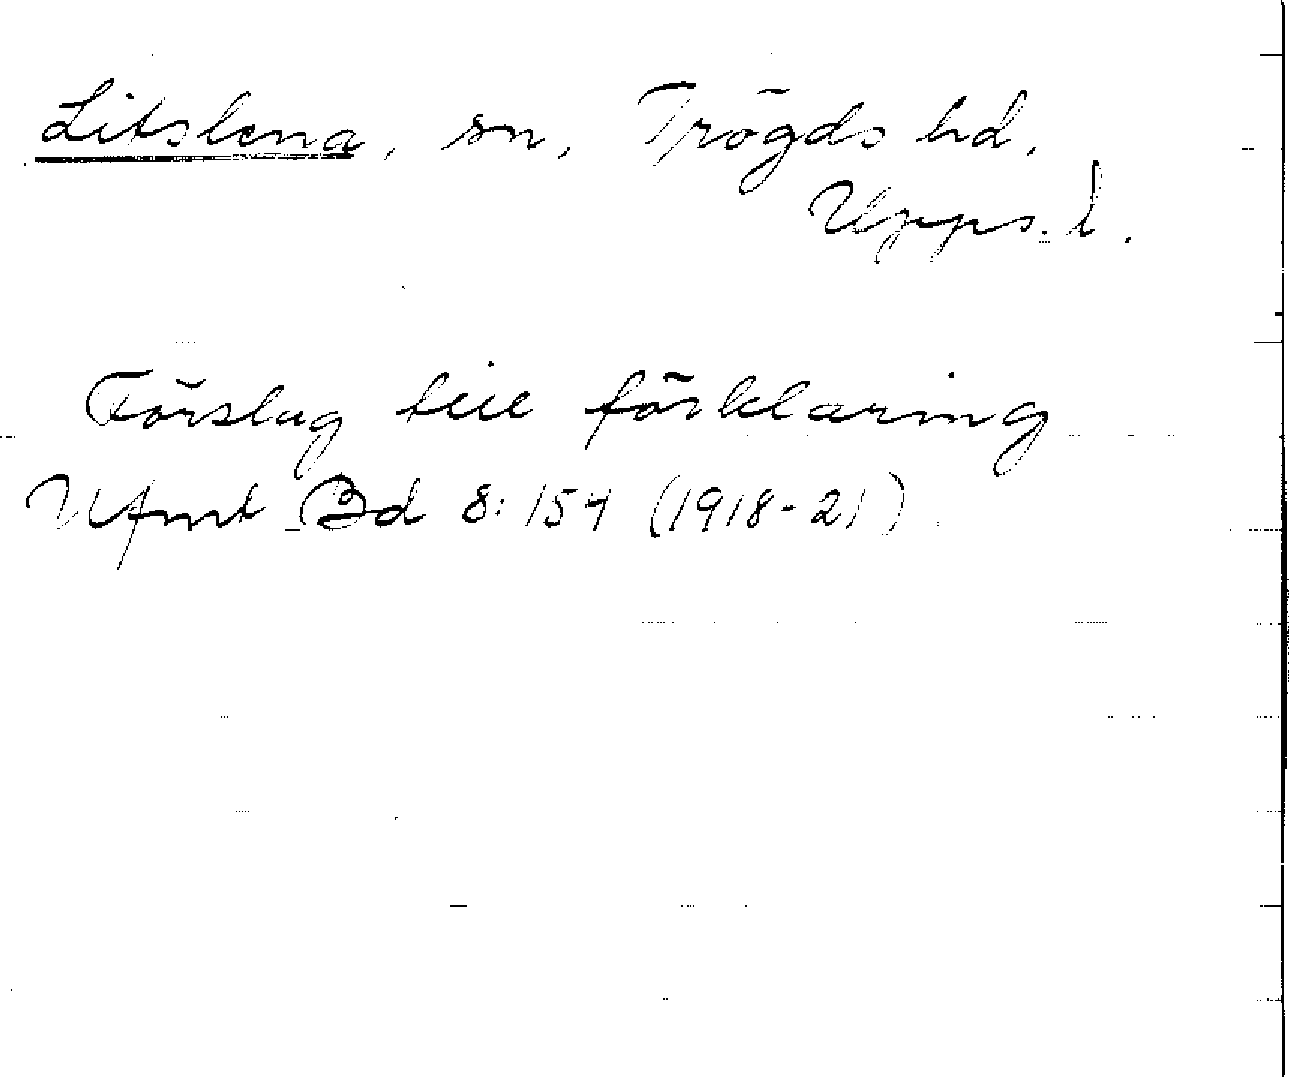 Litslena, sn, Trögds hd,
Upps. l.
Förslag till förklaring
Ufmt Bd 8:154 (1918-21)